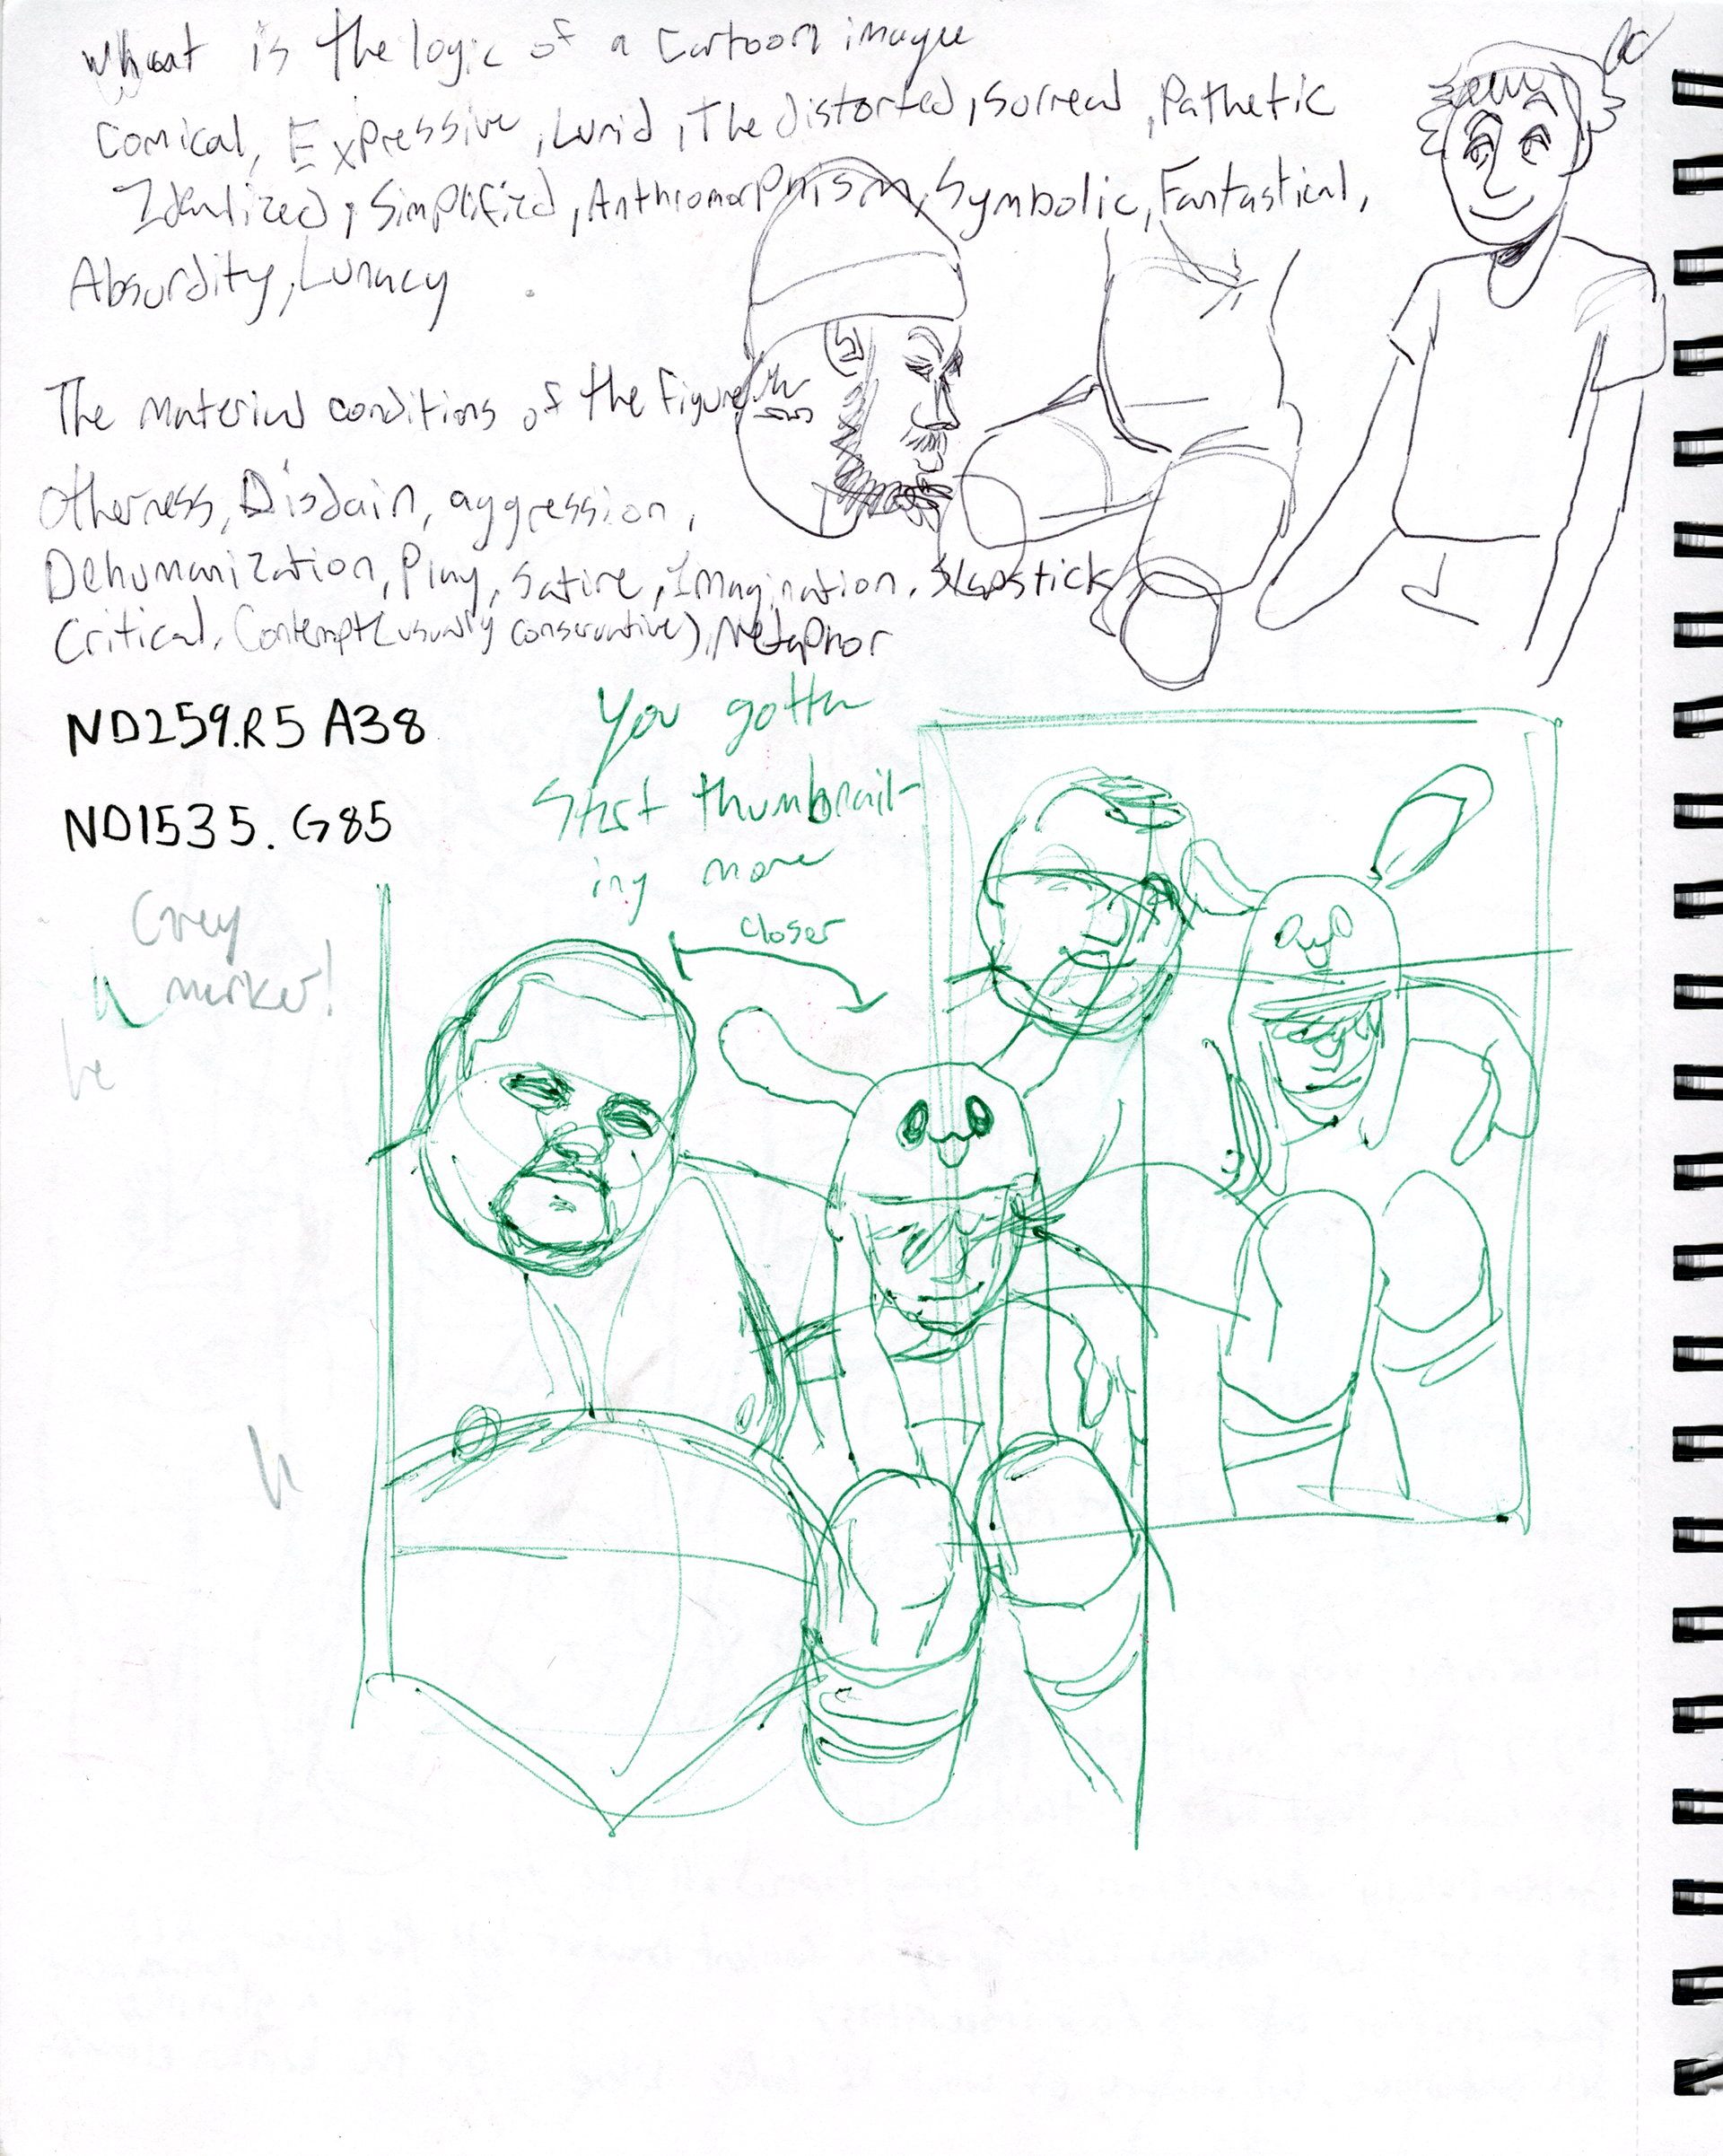 What is the logic of a Cartoon imaye
Comical, Expressive, Lurid, The distorted, Surreal, Pathetic
Idealized, Simplified, Anthromorphism, Symbolic, Fantastical,
Absurdity, Lunacy
The Material conditions of the Figure
Otherness, Disdain, aggression,
Dehumanization, Play, Satire, Imagination, Slapstick
Critical, Contempt (usually conservative), Metaphor
ND259.R5 A38
ND1535.G85
You gotta
Start thumbnail-
ing more
closer
Grey
marker!